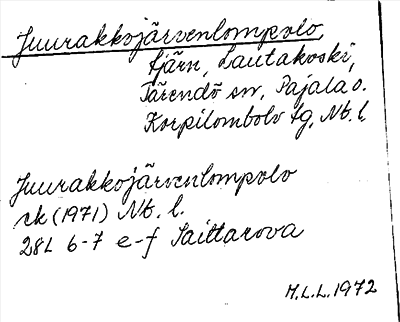 Juurakkojärvenlompolo,
tjärn, Lautakoski,
Tärendö sn, Pajala o.
Korpilombolo tg, Nb. l.
Juurakkojärvenlompolo
rk (1971) Nb. l.
28L 6-7 e-f Saittarova
M.L.L. 1972